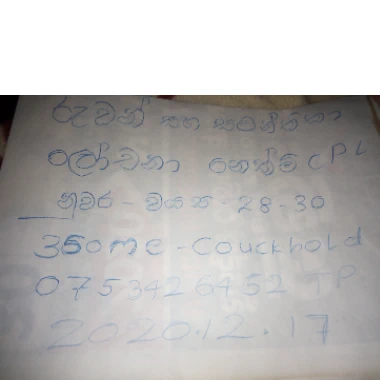 රුවන් සහ සමන්තිකා
ලෝචනා නෙත්මි CPL
නුවර - වයස - 28-30
350mc - Couckhold
0753426452 TP
2020.12.17